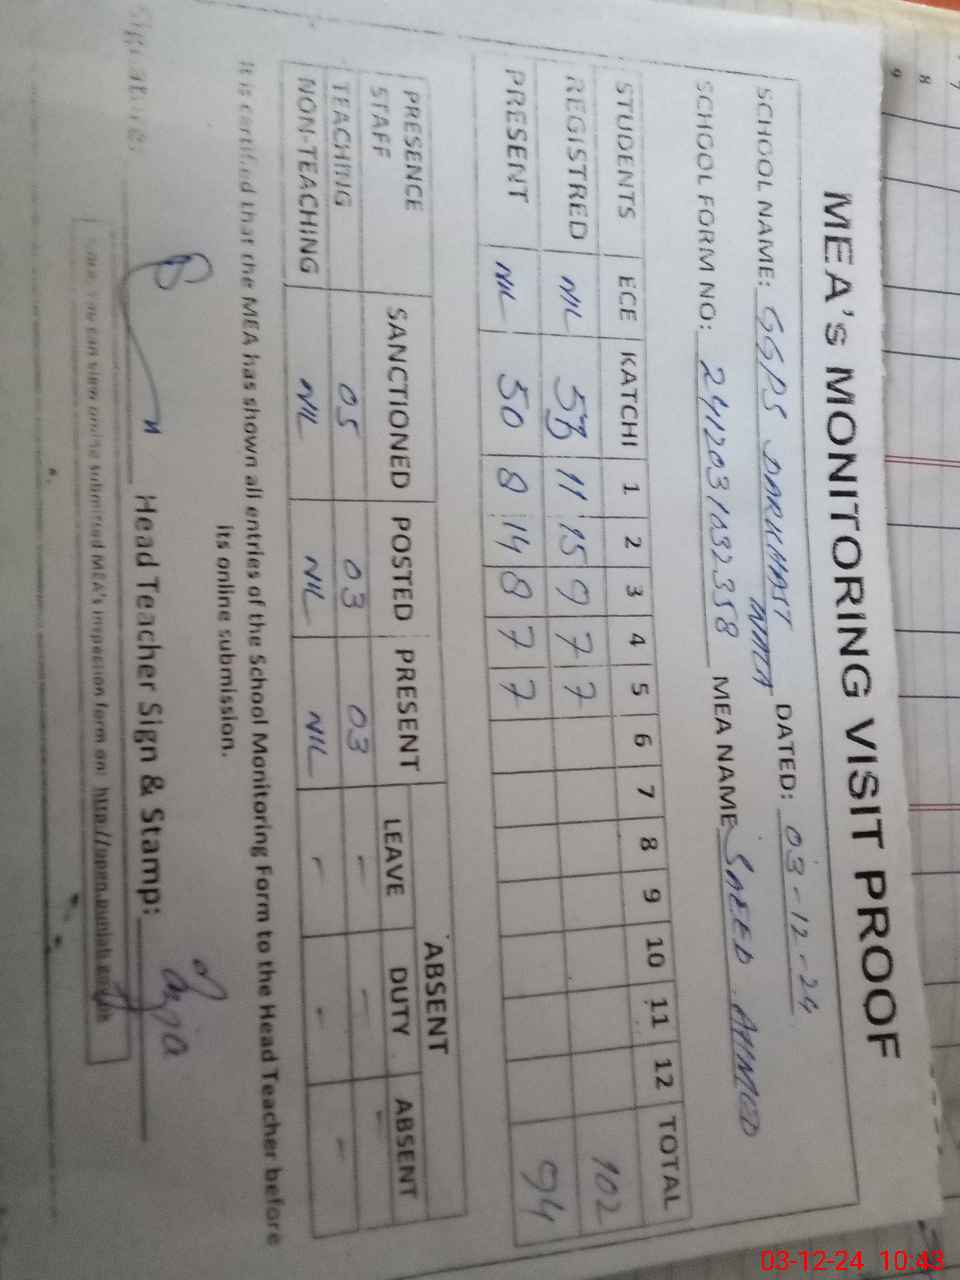 MEA's MONITORING VISIT PROOF
SCHOOL NAME: GGPS DARKHAST WALA DATED: 03-12-24
SCHOOL FORM NO: 2412031032358 MEA NAME SAEED AHMED
STUDENTS ECE KATCHI 1 2 3 4 5 6 7 8 9 10 11 12 TOTAL
REGISTRED NIL 53 11 15 9 7 7 102
PRESENT NIL 50 8 14 8 7 7 94
PRESENCE STAFF SANCTIONED POSTED PRESENT ABSENT
LEAVE DUTY ABSENT
TEACHING 05 03 03 - - -
NON-TEACHING NIL NIL NIL - - -
It is certified that the MEA has shown all entries of the School Monitoring Form to the Head Teacher before
its online submission.
Signature: Head Teacher Sign & Stamp:
You can view online submitted MEA's inspection form on: http://open.punjab.gov.pk
7
8
9
03-12-24 10:43